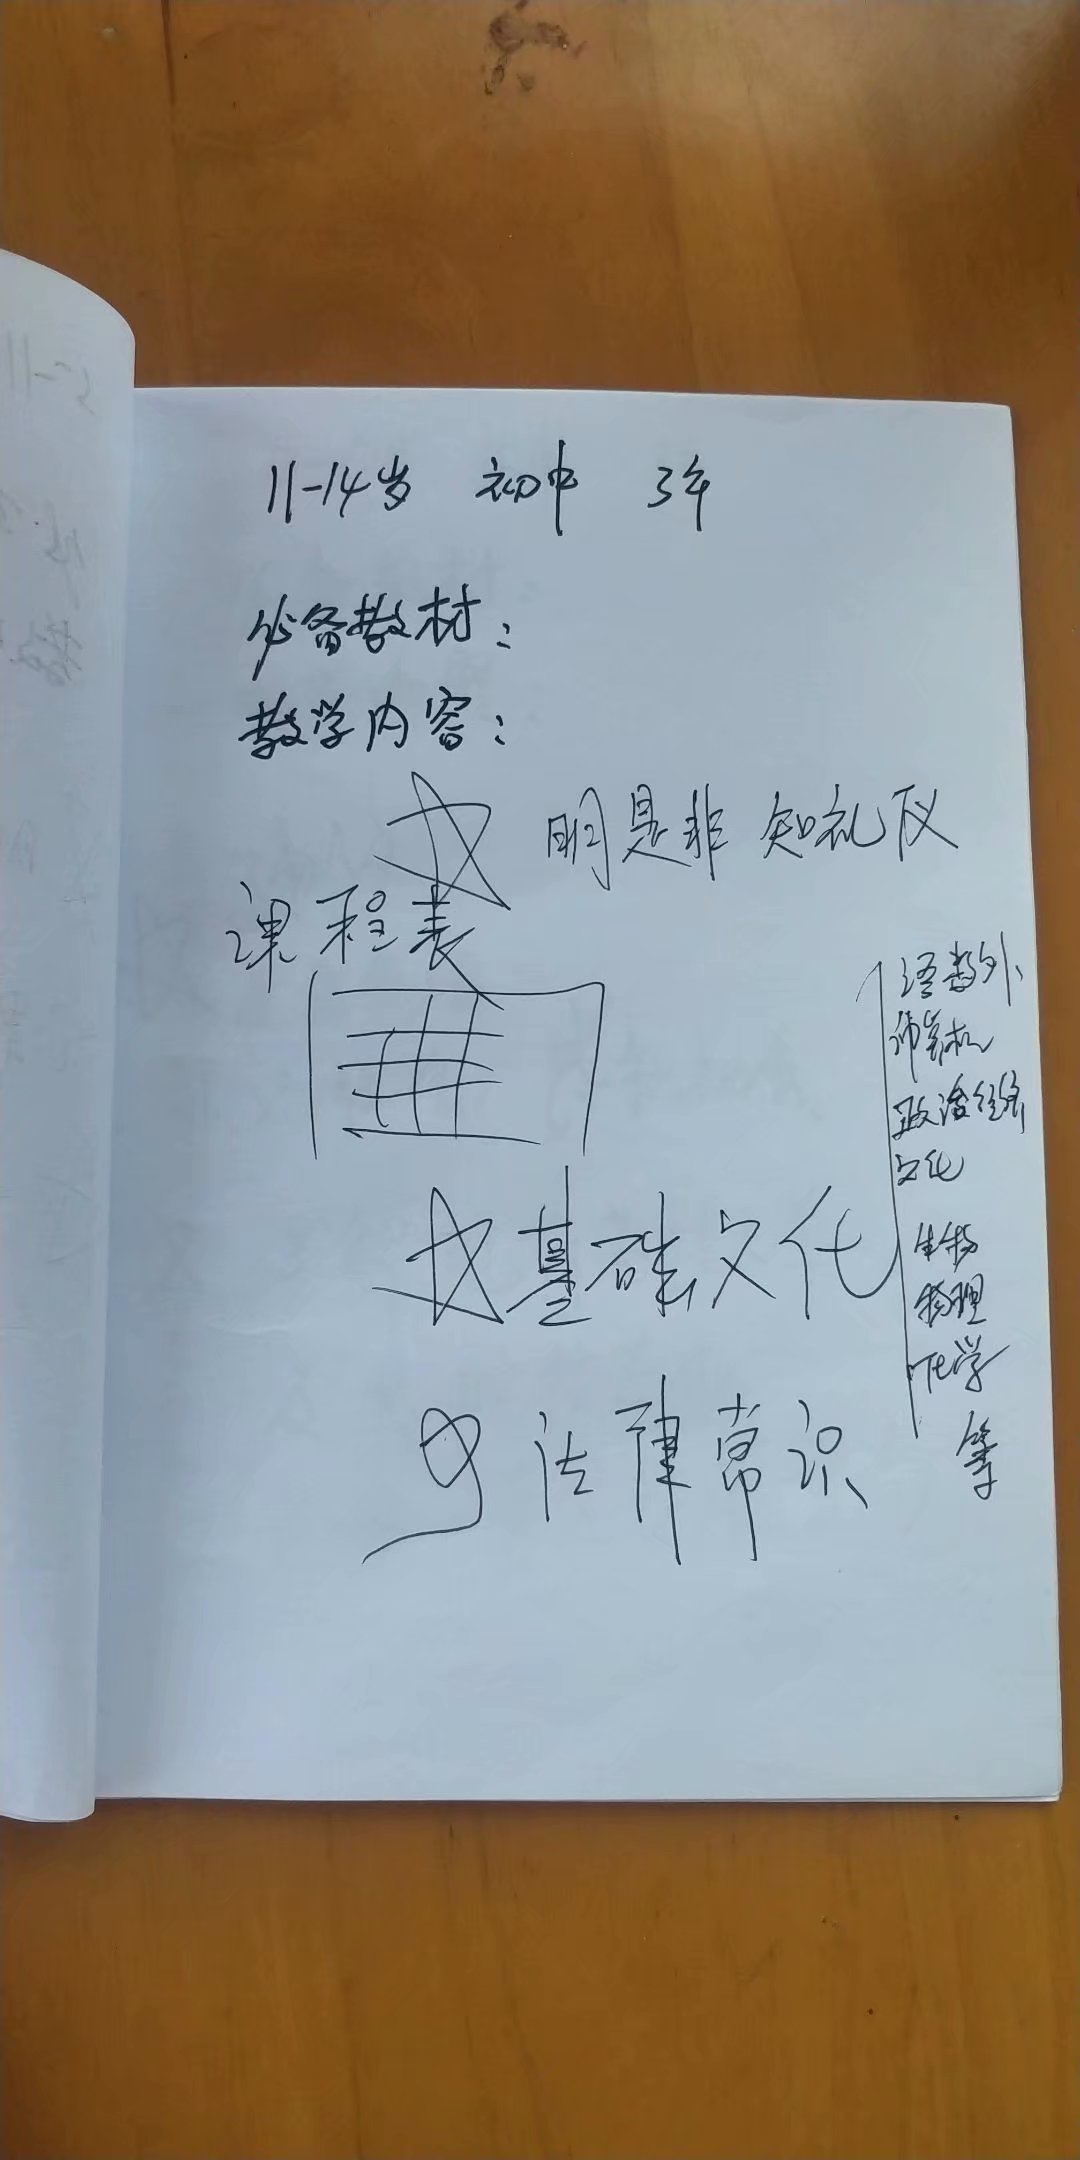 11-14岁 初中 3年
必备教材：
教学内容：
明是非 知礼仪
课程表
语数外、
计算机
政治经济
文化
基础文化
生物
物理
化学
等
法律常识